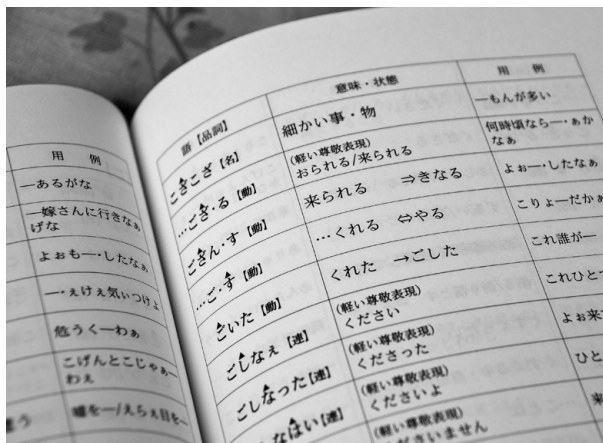 用 例
―あるがな
―嫁さんに行きなぁ
げな
よぉも―・したなぁ
―・ぇけぇ気ぃつけよ
危うく―わぁ
こげんとこじゃぁ―
わぇ
嘘を―/えらぇ目を―
語【品詞】 意味・状態 用 例
ごきこざ【名】 細かい事・物 ―もんが多い
…ごさ・る【動】 (軽い尊敬表現)
おられる/来られる 何時頃なら―・ぁか
なぁ
ごきん・す【動】 来られる ⇒きなる よぉ―・したなぁ
…ご・す【動】 …くれる ⇔やる こりょ―だかぁ
ごいた【動】 くれた →ごした これ誰が―
ごしなぇ【連】 (軽い尊敬表現)
ください これひとつ
ごしなった【連】 (軽い尊敬表現)
くださった よぉ来
なはい【連】 (軽い尊敬表現)
くださいよ ひと
(軽い尊敬表現)
くださいません 来